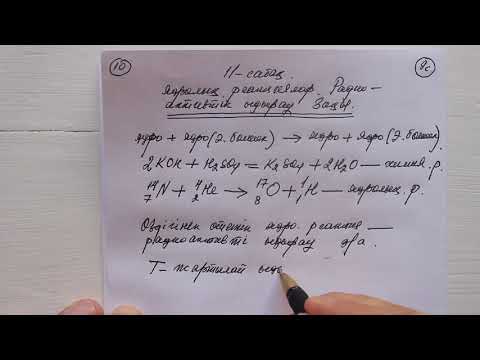 10
9с
11-сабақ.
Ядролық реакциялар. Радио-
активтік ыдырау Заңы.
ядро + ядро (Э. бөлшек) → ядро + ядро (Э. бөлшек).
2KOH + H₂SO₄ = K₂SO₄ + 2H₂O — химия р.
¹⁴₇N + ⁴₂He → ¹⁷₈O + ¹₁H — ядролық р.
Өздігінен өтетін ядро. реакция —
радиоактивті ыдырау д/а.
T – жартылай